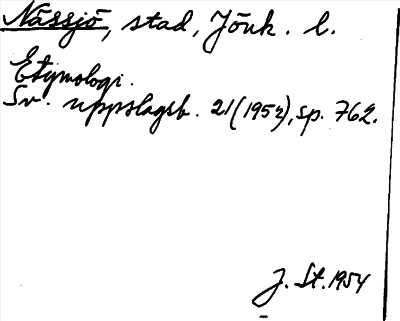 Nässjö, stad, Jönk. l.
Etymologi.
Sv. uppslagsb. 21(1952), sp. 762.
J. St. 1954